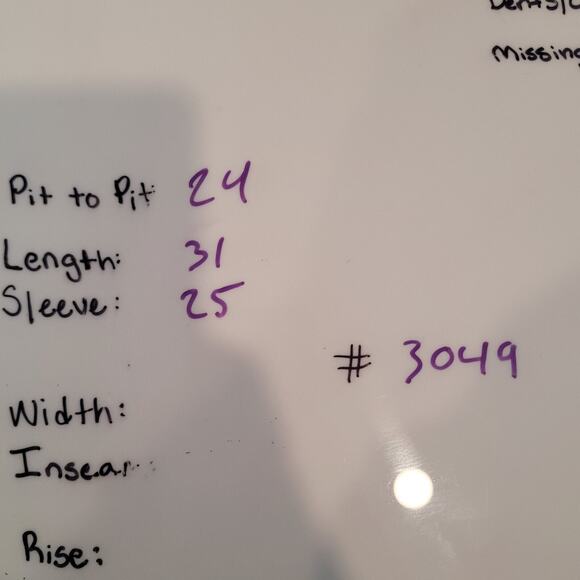 Missing
Pit to Pit 24
Length: 31
Sleeve: 25
# 3049
Width:
Rise: